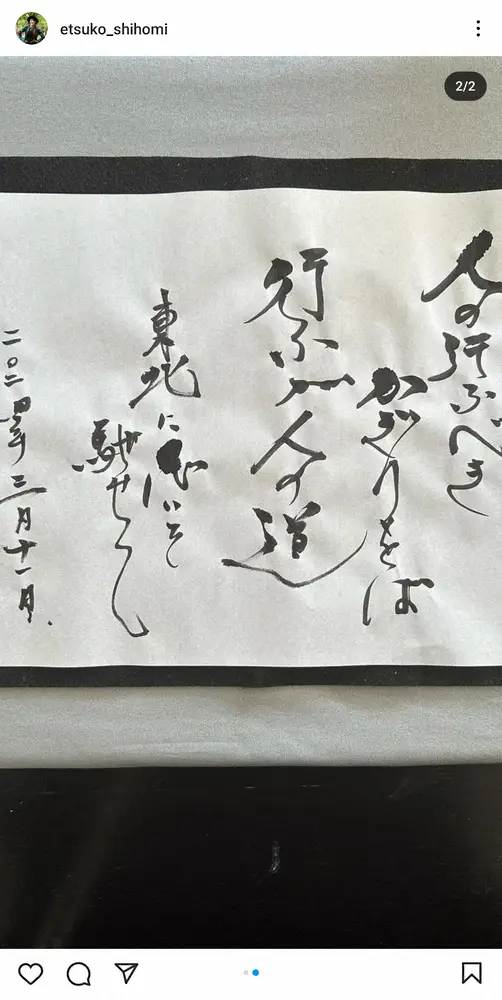 etsuko_shihomi
2/2
人の行ふべき
かぎりをば
行ふが人の道
東北に思いを
馳せ
二〇二四年三月十一日、